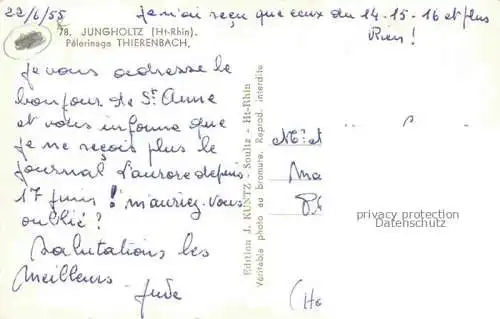 22/6/55
je n'ai reçu que ceux du 14-15-16 et plus
Rien!
78. JUNGHOLTZ (Ht-Rhin).
Pèlerinage THIERENBACH.
Je vous adresse le
bonjour de St. Anne
et vous informe que
je ne reçois plus le
journal L'aurore depuis
17 juin! m'auriez-vous
oublié?
Salutations les
meilleurs
Jude
Edition J. KUNTZ - Soultz - Ht-Rhin
Véritable photo au bromure. Reprod. interdite
privacy protection
Datenschutz